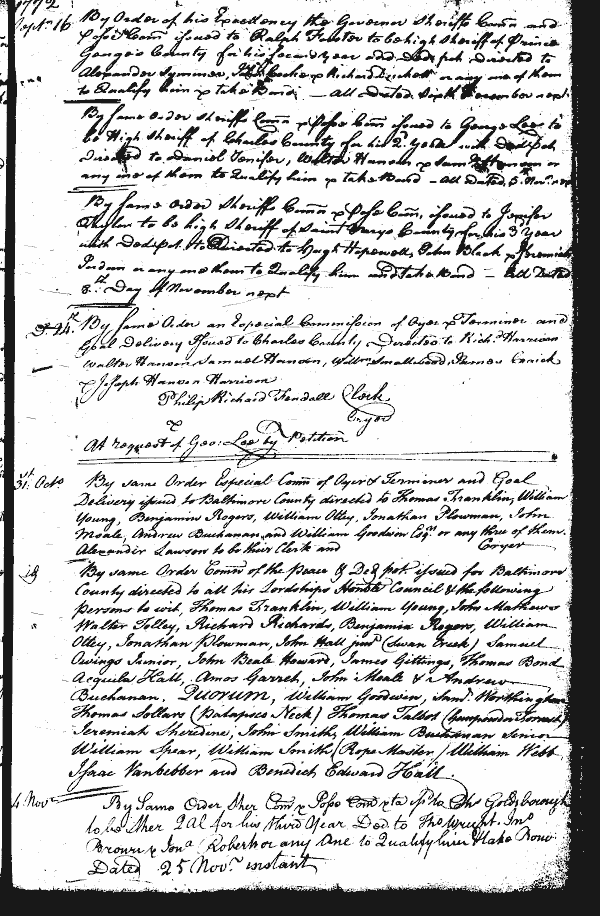 1772
Sept. 16 By Order of his Excellency the Governor Sheriffs Comn and
Posse Comn issued to Ralph Forster to be high Sheriff of Prince
George's County for his Second year and Ded. pot. directed to
Alexander Symmer, & Richard or any one of them
to Qualify him & take Bond — All dated Sixth November next
By same order Sheriffs Comn & Posse Comn issued to George Lee to
be High Sheriff of Charles County for his 2d year with dedi pot.
Directed to Daniel Jenifer, Walter Hanson & Sam or
any one of them to Qualify him & take Bond — All Dated 5th Novr next
By same order Sheriffs Comn & Posse Comn, issued to Jenifer
Taylor to be high Sheriff of Saint Marys County, for his 3 year
with dedi pot. Directed to Hugh Hopewell, John Black & Jeremiah
Jordan or any one them to Qualify him and take Bond — All Dated
8th Day of November next
By same Order an Especial Commission of Oyer & Terminer and
Goal Delivery issued to Charles County, directed to Richd Harrison
Walter Hanson, Samuel Hanson, Willm Smallwood, James
& Joseph Hanson Harrison
Philip Richard Fendall Clerk
Cryer
At request of Geo: Lee by Petition
31st Octo. By same Order Especial Comn of Oyer & Terminer and Goal
Delivery issued to Baltimore County directed to Thomas Franklin, William
Young, Benjamin Rogers, William Otley, Jonathan Plowman, John
Moale, Andrew Buchanan and William Goodwin Esqrs or any three of them.
Alexander Lawson to be their Clerk and Coryer
id By same Order Comn of the peace & Ded pot. issued for Baltimore
County directed to all his Lordships Honble Council & the following
Persons to wit, Thomas Franklin, William Young, John Mathews
Walter Tolley, Richard Richards, Benjamin Rogers, William
Otley, Jonathan Plowman, John Hall junr (Swan Creek) Samuel
Owings Junior, John Beale Howard, James Gittings, Thomas Bond
Acquila Hall, Amos Garrett, John Moale & Andrew
Buchanan. Quorum, William Goodwin, Saml Worthington
Thomas Sollars (Patapsco Neck) Thomas Talbot (Gunpowder Forrest)
Jeremiah Sheredine, John Smith, William Buchanan Senior
William Spear, William Smith (Rope Master) William Webb
Isaac Vanbebber and Benedict Edward Hall.
4 Novr By Same Order Sher Comn & Posse Comn Goldsborough
to be Sher Tal for his third Year Ded to Tho Wright Jno
Brown & Jona. Roberts or any One to Qualify him & take Bond
Dated 25 Novr instant